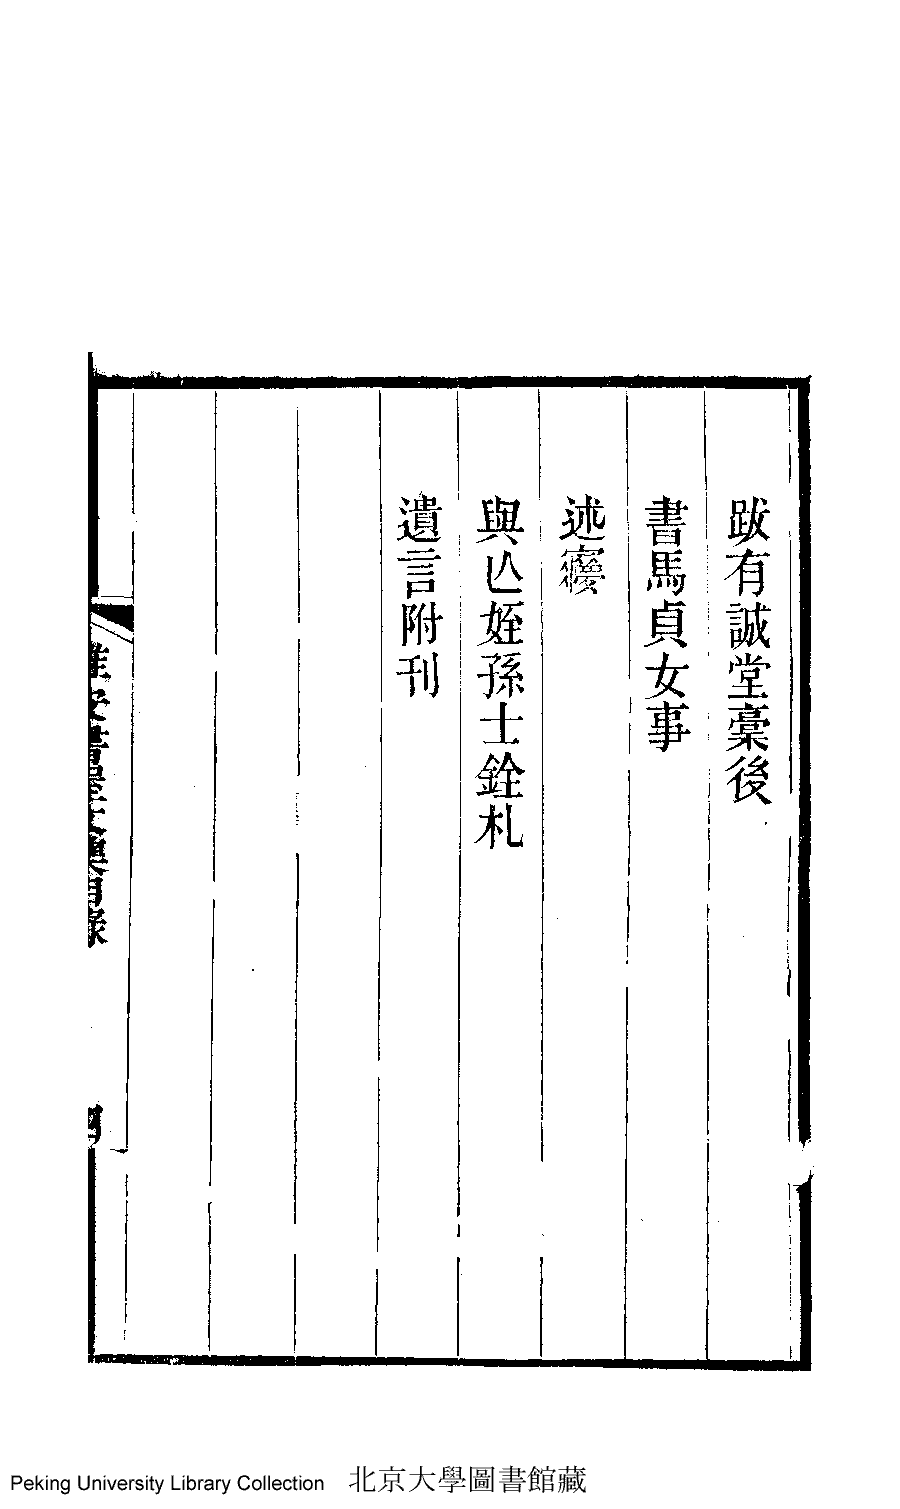 跋有誠堂稾後
書馬貞女事
述㝱
與亾姪孫士銓札
遺言附刊
目錄
四
Peking University Library Collection 北京大學圖書館藏